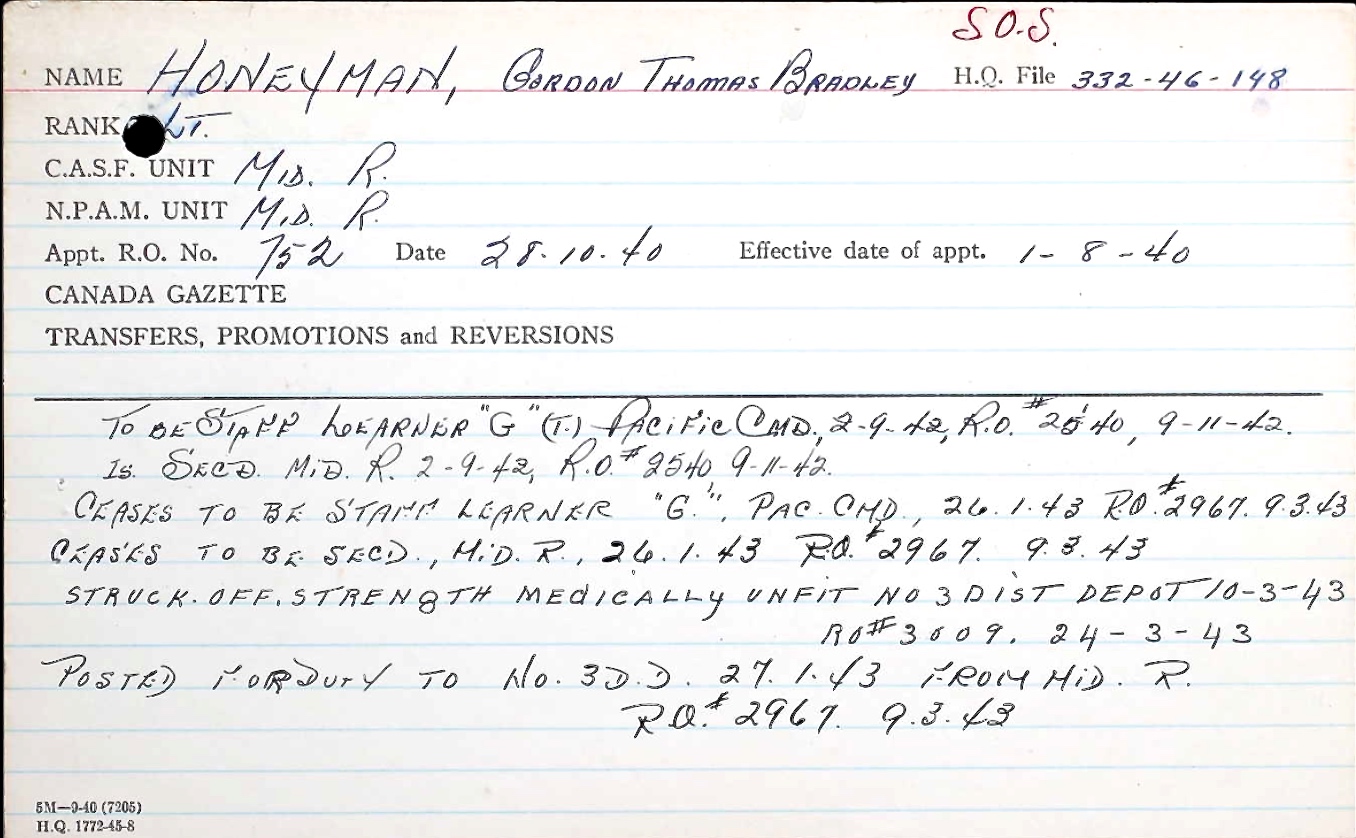 S.O.S.
NAME HONEYMAN, GORDON THOMAS BRADLEY H.Q. File 332-46-148
RANK LT.
C.A.S.F. UNIT MID. R.
N.P.A.M. UNIT MID. R.
Appt. R.O. No. 752 Date 28.10.40 Effective date of appt. 1-8-40
CANADA GAZETTE
TRANSFERS, PROMOTIONS and REVERSIONS
TO BE STAFF LEARNER "G" (T.) PACIFIC CMD., 2-9-42, R.O. #2540, 9-11-42.
IS. SECD. MID. R. 2-9-42, R.O.# 2540, 9-11-42.
CEASES TO BE STAFF LEARNER "G.", PAC. CMD., 26.1.43 R.O.#2967. 9.3.43
CEASES TO BE SECD., MID. R., 26.1.43 R.O.#2967. 9.3.43
STRUCK.OFF.STRENGTH MEDICALLY UNFIT NO 3 DIST DEPOT 10-3-43
RO# 3009. 24-3-43
POSTED FOR DUTY TO No. 3 D.D. 27.1.43 FROM MID. R.
R.O.# 2967. 9.3.43
5M—9-40 (7205)
H.Q. 1772-45-8